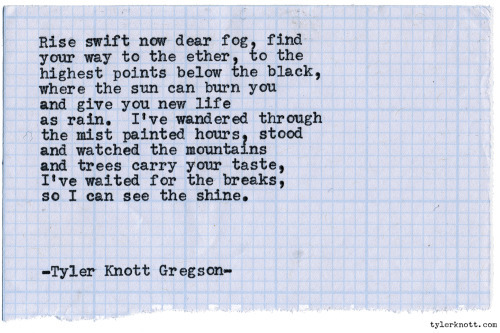 Rise swift now dear fog, find
your way to the ether, to the
highest points below the black,
where the sun can burn you
and give you new life
as rain.  I've wandered through
the mist painted hours, stood
and watched the mountains
and trees carry your taste,
I've waited for the breaks,
so I can see the shine.
-Tyler Knott Gregson-
tylerknott.com